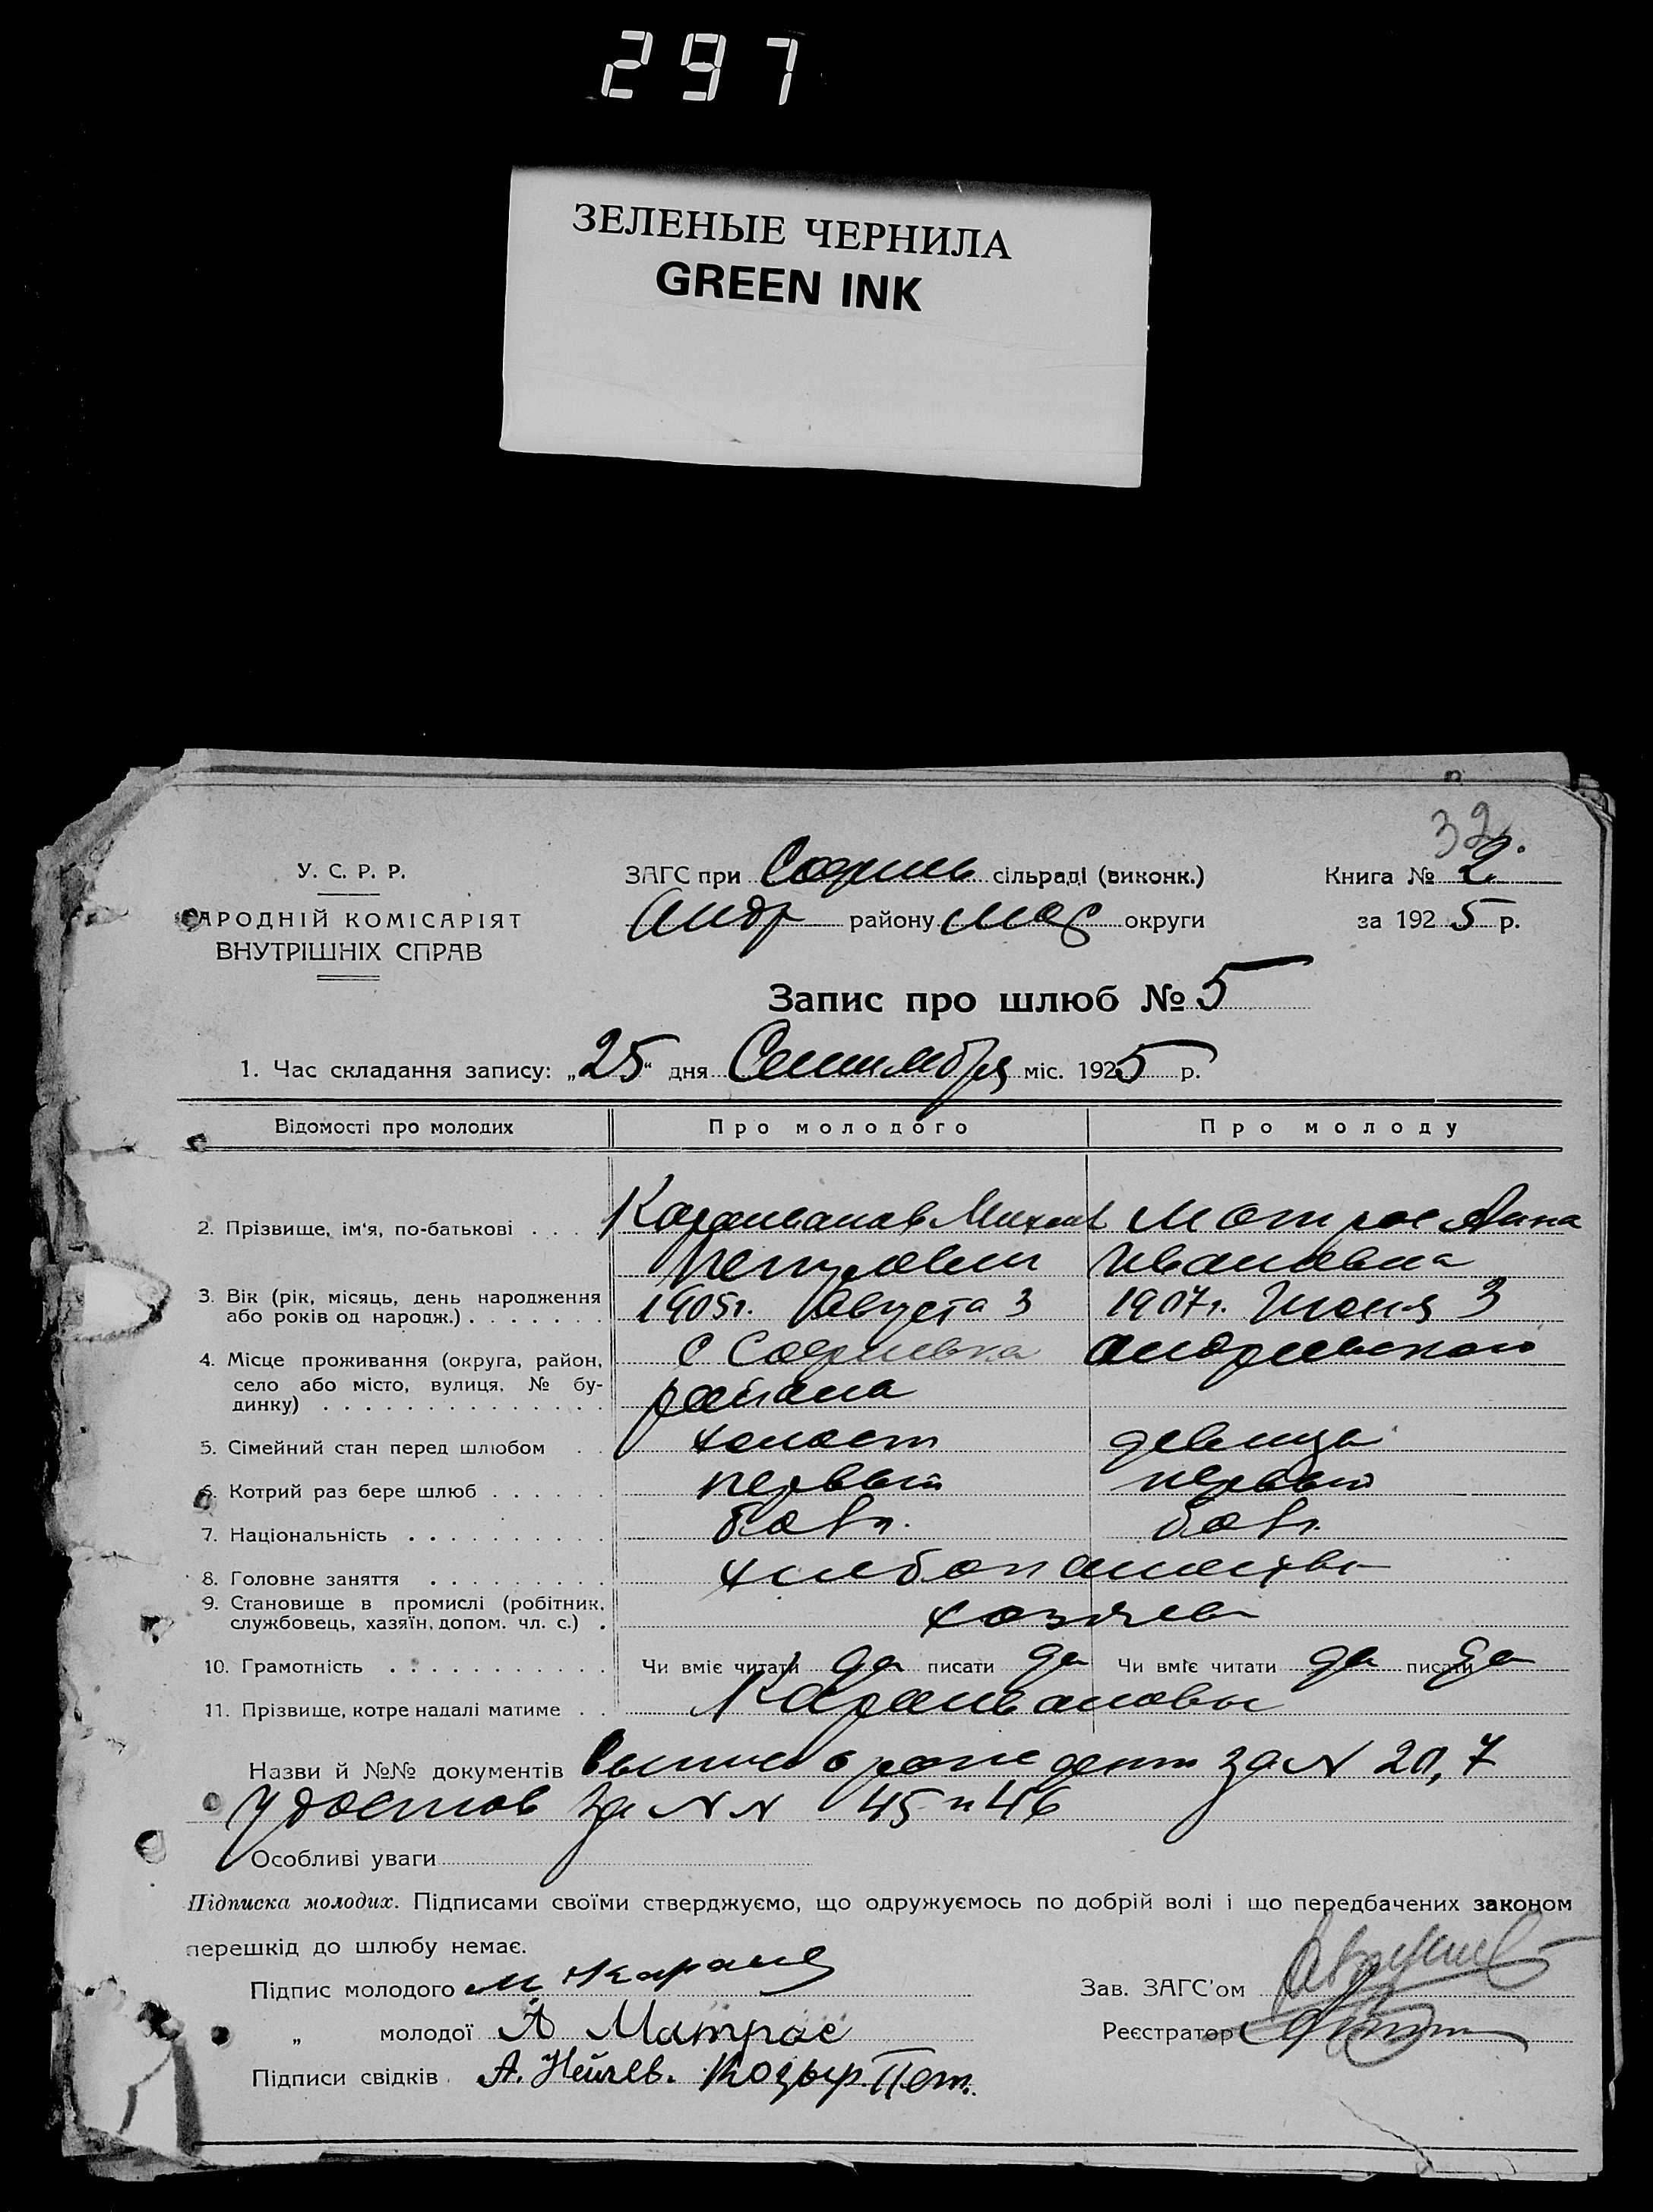 297
ЗЕЛЕНЫЕ ЧЕРНИЛА
GREEN INK
32
У. С. Р. Р.
АРОДНІЙ КОМІСАРІЯТ
ВНУТРІШНІХ СПРАВ
ЗАГС при Софиев сільраді (виконк.)
Андр району округи
Книга № 2
за 1925 р.
Запис про шлюб № 5
1. Час складання запису: „25“ дня Сентября міс. 1925 р.
Відомості про молодих Про молодого Про молоду
2. Прізвище, ім'я, по-батькові . . . . Михаил Матрос Анна
Петрович Ивановна
3. Вік (рік, місяць, день народження або років од народж.) . . . . . . . 1905г. Августа 3 1907г. Июня 3
4. Місце проживання (округа, район, село або місто, вулиця, № будинку) . . . . . . . . . . . . . . С Софиевка Андриевского
района
5. Сімейний стан перед шлюбом . . холост девица
6. Котрий раз бере шлюб . . . . . . первый первый
7. Національність . . . . . . . . . . болг. болг.
8. Головне заняття . . . . . . . . . хлебопашество
9. Становище в промислі (робітник, службовець, хазяїн, допом. чл. с.) . хозяева
10. Грамотність . . . . . . . . . . . Чи вміє читати да писати да Чи вміє читати да писати да
11. Прізвище, котре надалі матиме . .
Назви й №№ документів за N 20, 7
удостов за NN 45 и 46
Особливі уваги
Підписка молодих. Підписами своїми стверджуємо, що одружуємось по добрій волі і що передбачених законом
перешкід до шлюбу немає.
Підпис молодого М Каране
„ молодої А Матрос
Підписи свідків А. Нейчев. Козыр. Пет.
Зав. ЗАГС'ом
Реєстратор